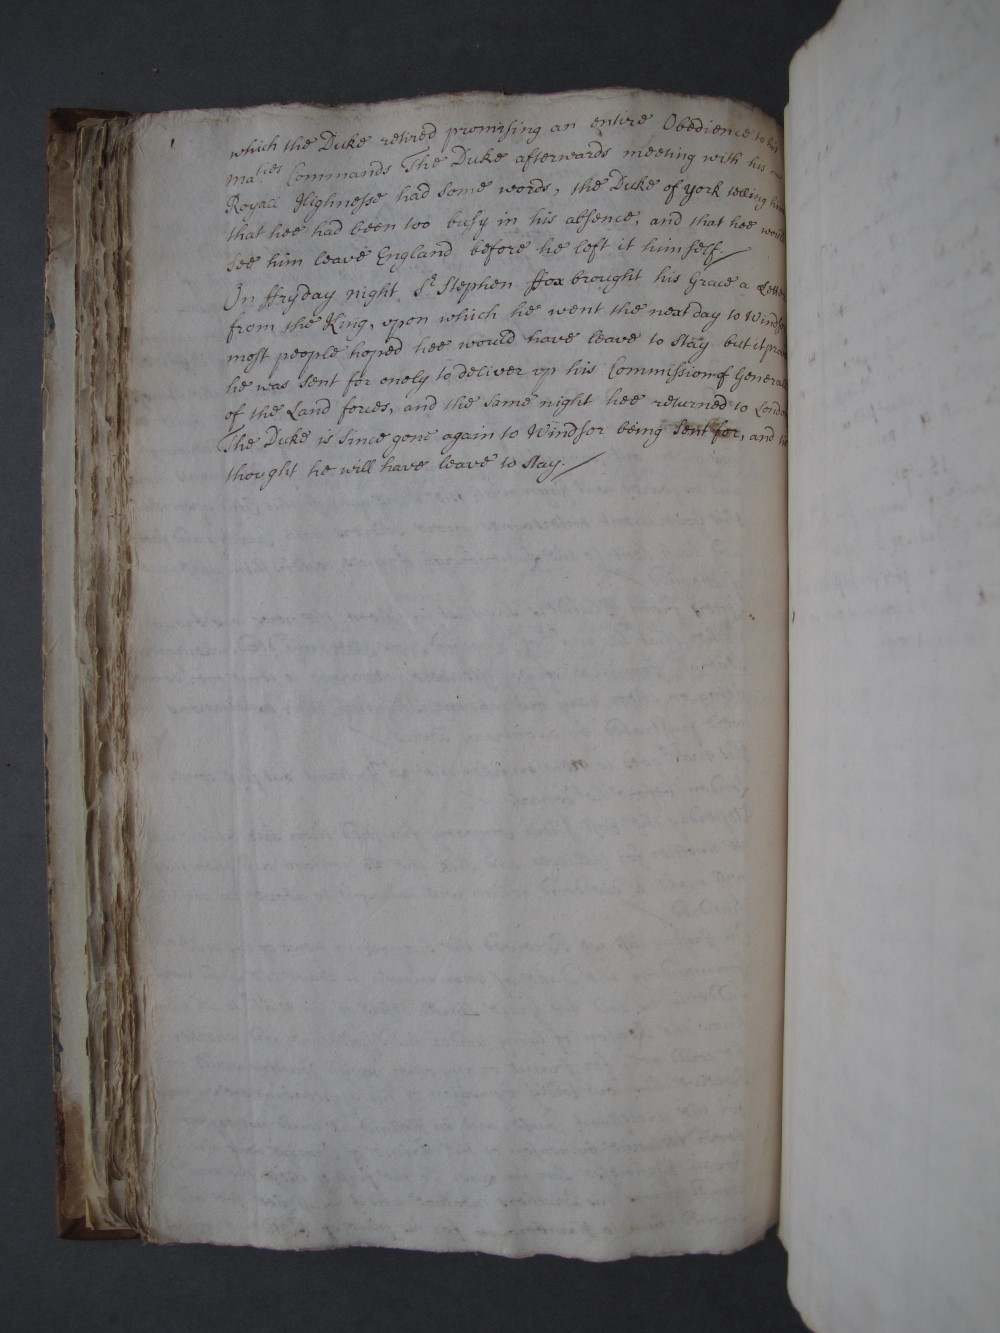 which the Duke retired promising an entire Obedience to his
Maties Commands The Duke afterwards meeting with his
Royall Highnesse had some words, the Duke of York telling him
that hee had been too busy in his absence, and that hee would
see him leave England before he left it himself.
On ffryday night Sr Stephen ffox brought his Grace a Letter
from the King, upon which he went the next day to Windsor
most people hoped hee would have leave to stay but it
he was sent for onely to deliver up his Commission of Generall
of the Land forces, and the same night hee returned to London
The Duke is since gone again to Windsor being sent for, and
thought he will have leave to stay.